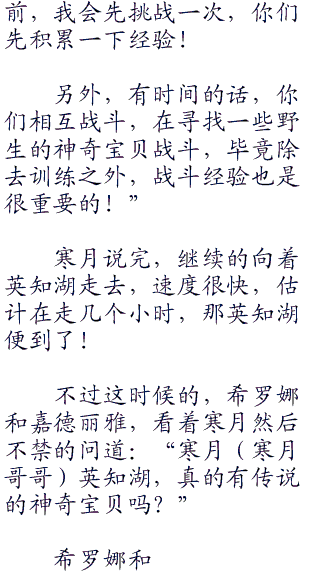 前，我会先挑战一次，你们
先积累一下经验！
另外，有时间的话，你
们相互战斗，在寻找一些野
生的神奇宝贝战斗，毕竟除
去训练之外，战斗经验也是
很重要的！”
寒月说完，继续的向着
英知湖走去，速度很快，估
计在走几个小时，那英知湖
便到了！
不过这时候的，希罗娜
和嘉德丽雅，看着寒月然后
不禁的问道：“寒月（寒月
哥哥）英知湖，真的有传说
的神奇宝贝吗？”
希罗娜和